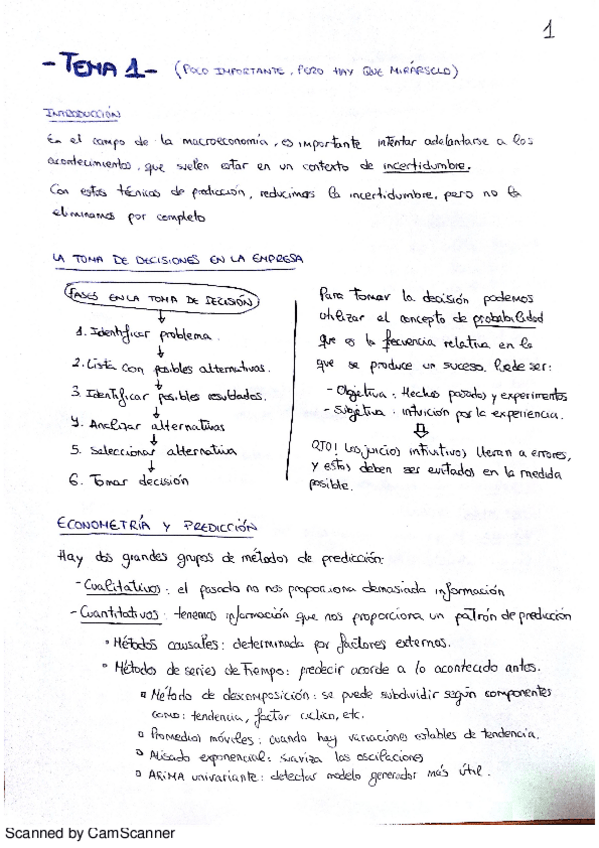 1
- TEMA 1 - (POCO IMPORTANTE, PERO HAY QUE MIRÁRSELO)
INTRODUCCIÓN
En el campo de la macroeconomía, es importante intentar adelantarse a los
acontecimientos, que suelen estar en un contexto de incertidumbre.
Con estas técnicas de predicción, reducimos la incertidumbre, pero no la
eliminamos por completo
LA TOMA DE DECISIONES EN LA EMPRESA
FASES EN LA TOMA DE DECISIÓN
1. Identificar problema.
2. Lista con posibles alternativas.
3. Identificar posibles resultados.
4. Analizar alternativas
5. Seleccionar alternativa
6. Tomar decisión
Para tomar la decisión podemos
utilizar el concepto de probabilidad
que es la frecuencia relativa en la
que se produce un suceso. Puede ser:
- Objetiva: Hechos pasados y experimentos
- Subjetiva: intuición por la experiencia.
OJO! Los juicios intuitivos llevan a errores,
y estos deben ser evitados en la medida
posible.
ECONOMETRÍA Y PREDICCIÓN
Hay dos grandes grupos de métodos de predicción:
- Cualitativos: el pasado no nos proporciona demasiada información
- Cuantitativos: tenemos información que nos proporciona un patrón de predicción
• Métodos causales: determinada por factores externos.
• Métodos de series de Tiempo: predecir acorde a lo acontecido antes.
Método de descomposición: se puede subdividir según componentes
como: tendencia, factor cíclico, etc.
Promedios móviles: cuando hay variaciones estables de tendencia.
Alisado exponencial: suaviza las oscilaciones
ARIMA univariante: detectar modelo generador más útil.
Scanned by CamScanner